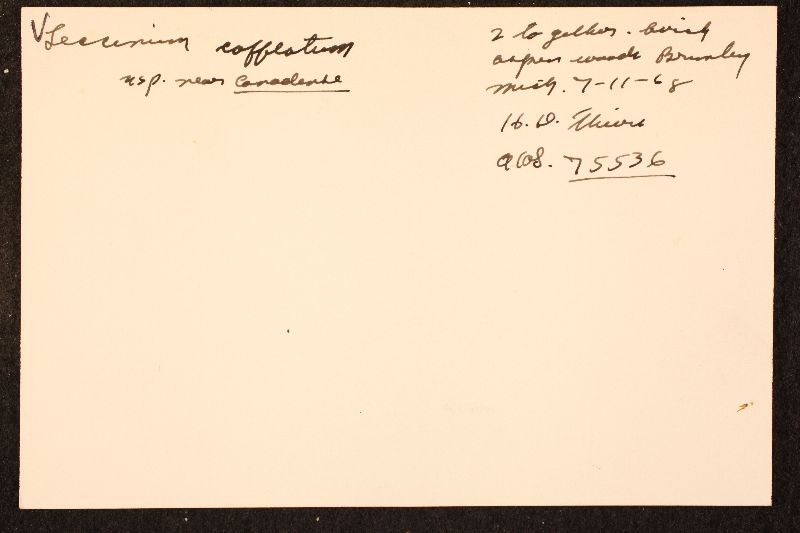 ✓ Leccinum coffeatum
nsp. near Canadense
2 together. birch
aspen woods Brimley
Mich. 7-11-68
H. D. Thiers
AHS. 75536